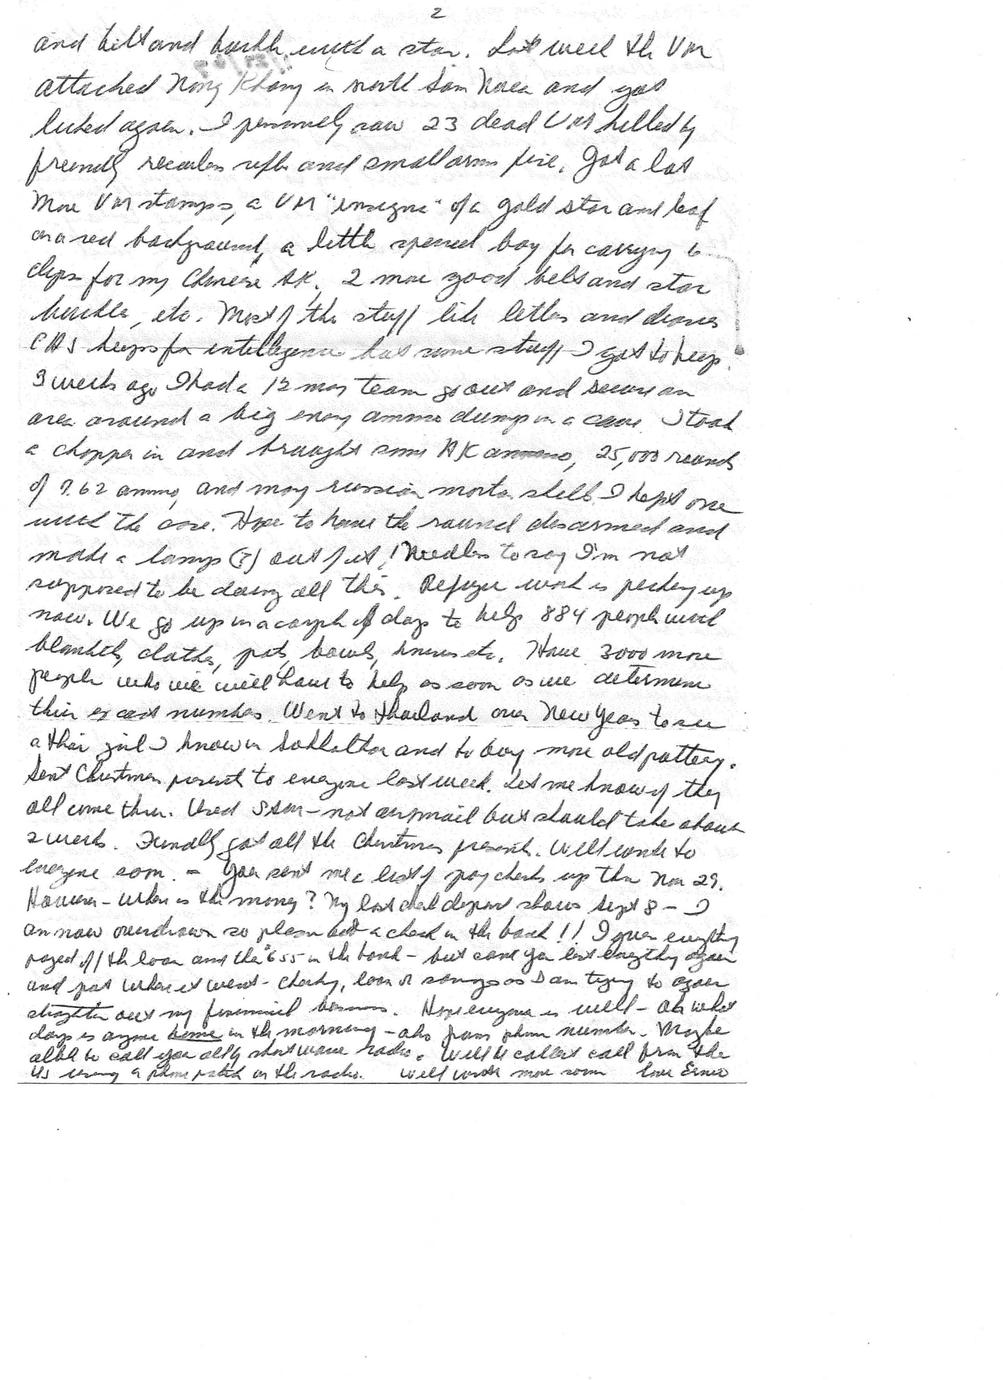 2
and belt and buckle with a star. Last week the VM
attacked Nong Khang in north Sam Neua and got
licked again. I personally saw 23 dead VM killed by
friendly recoiless rifle and small arms fire. Got a lot
more VM stamps, a VM "insigne" of a gold star and leaf
on a red background, a little special bag for carrying 6
clips for my Chinese AK, 2 more good belts and star
buckle, etc. Most of the stuff like letters and diaries
CAS keeps for intelligence but some stuff I got to keep.
3 weeks ago I had a 12 man team go out and secure an
area around a big enemy ammo dump in a cave. I took
a chopper in and brought some AK ammo, 25,000 rounds
of 7.62 ammo, and many russian mortar shells. I kept one
with the case. Hope to have the round disarmed and
made a lamp (?) out of it! Needless to say I'm not
supposed to be doing all this. Refugee work is picking up
now. We go up in a couple of days to help 884 people with
blankets, clothes, pots, bowls, knives etc. Have 3000 more
people who we will have to help as soon as we determine
their exact number. Went to Thailand over New Years to see
a thai girl I know in and to buy more old pottery.
Sent Christmas presents to everyone last week. Let me know if they
all come thru. Used SAM - not airmail but should take about
2 weeks. Finally got all the Christmas presents. Will write to
everyone soon. - You sent me a list of pay checks up thru Nov 29.
However - where is the money? My last check deposit shows Sept 8 - I
am now overdrawn so please put a check in the bank!! I given everything
payed off the loan and the 655 in the bank - but can you list everything again
and put where it went - checking, loan or savings as I am trying to again
straighten out my financial business. Hope everyone is well - on what
days is anyone home in the morning - also phone number. Maybe
able to call you by short wave radio. Will be collect call from the
US using a phone patch on the radio. Will write more soon love Ernie